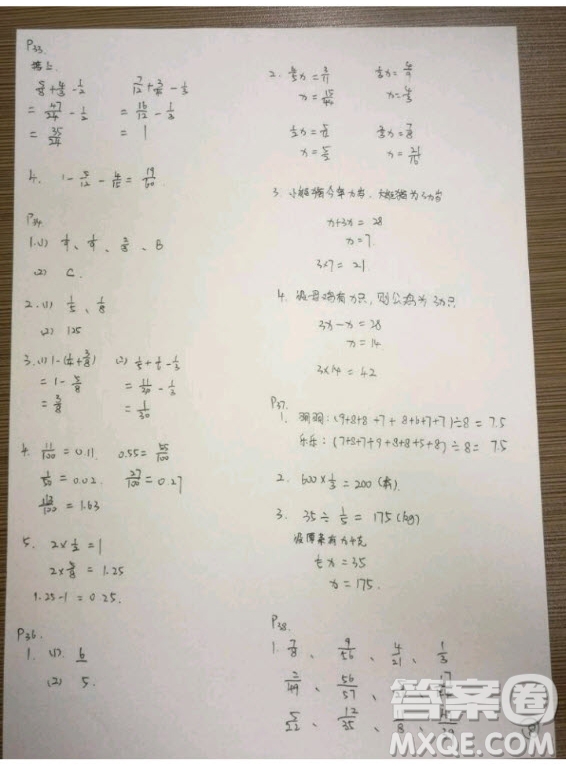 P33
接上
5/8+4/3-1/2 7/12+3/4-1/3
=47/24-1/2 =16/12-1/3
=35/24 =1
4. 1-5/12-4/15=19/60
P34
1.(1) 1/4、1/4、3/8、B
(2) C.
2.(1) 1/5、1/8
(2) 125
3.(1) 1-(1/4+3/8) (2) 1/5+1/6-1/3
=1-5/8 =11/30-1/3
=3/8 =1/30
4. 11/100=0.11 0.55=55/100
1/50=0.02 27/100=0.27
163/100=1.63
5. 2×1/2=1
2×5/8=1.25
1.25-1=0.25.
P36
1. (1). 6
(2) 5.
2.
x=15/44 x=4/3
1/3x=5/6
x=5/2 x=21/16
3. 小姐猪今年x岁,
x+3x=28
x=7.
3×7=21.
4. 设母鸡有x只,则公鸡为3x只
3x-x=28
x=14.
3×14=42
P37.
1. 明明:(9+8+8+7+8+6+7+7)÷8=7.5
乐乐:(7+8+7+9+8+8+5+8)÷8=7.5
2. 600×1/3=200(本).
3. 35÷1/5=175(kg)
设原来有x千克
1/5x=35
x=175.
P38.
1. 7/8、9/56、4/21、1/3
2/49、56/57、
5/22、12/35、
答案圈
MXQE.COM